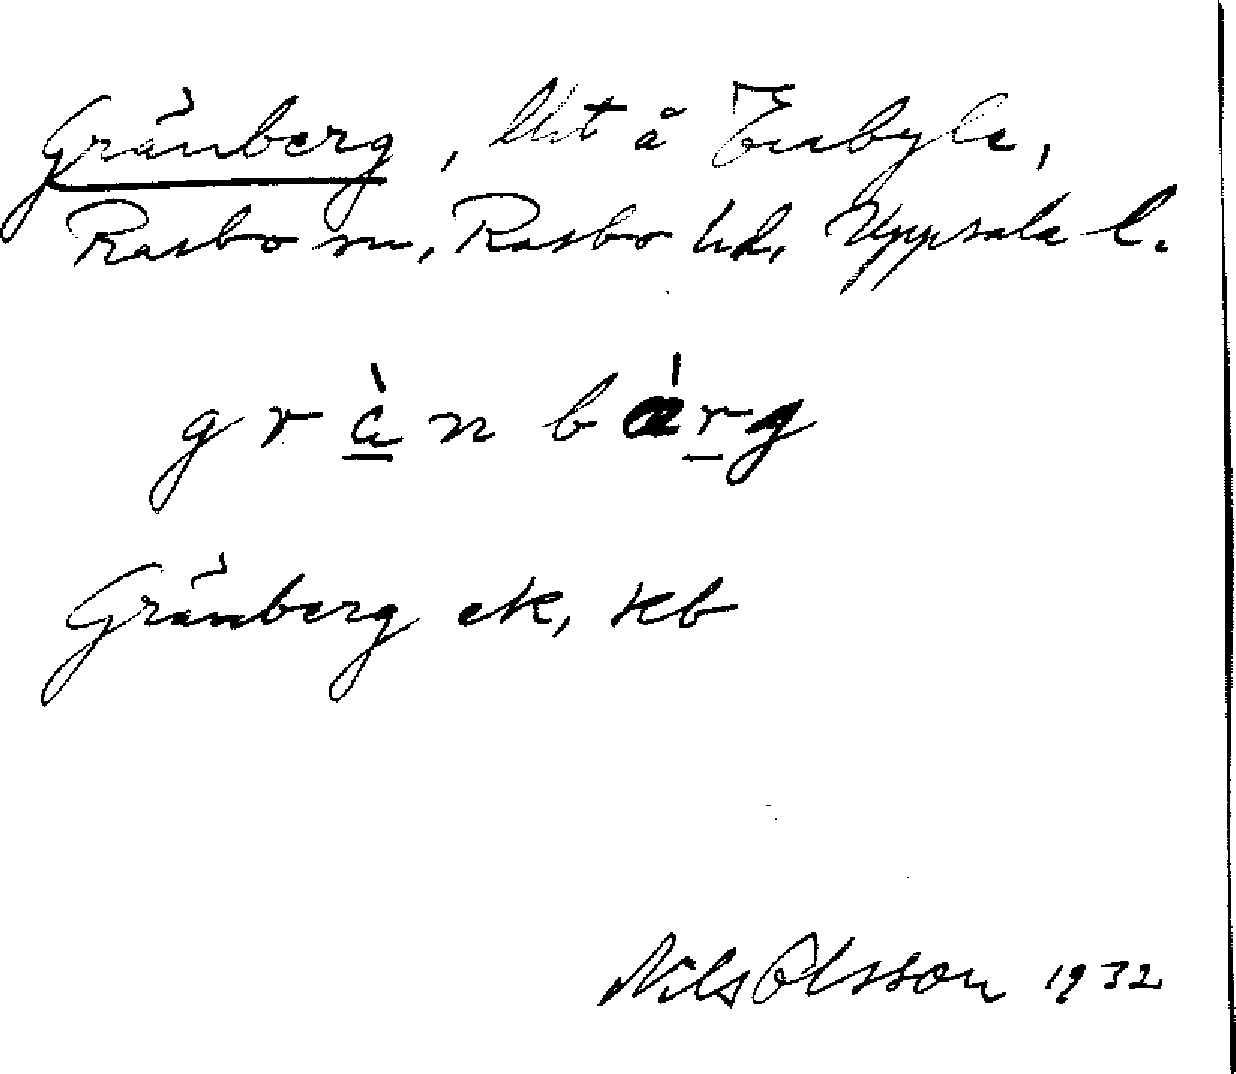 Gränberg, lht å
Rasbo sn, Rasbo hd, Uppsala l.
g r à n b ä́ r g
Gränberg ek, skb
Nils Olsson 1932